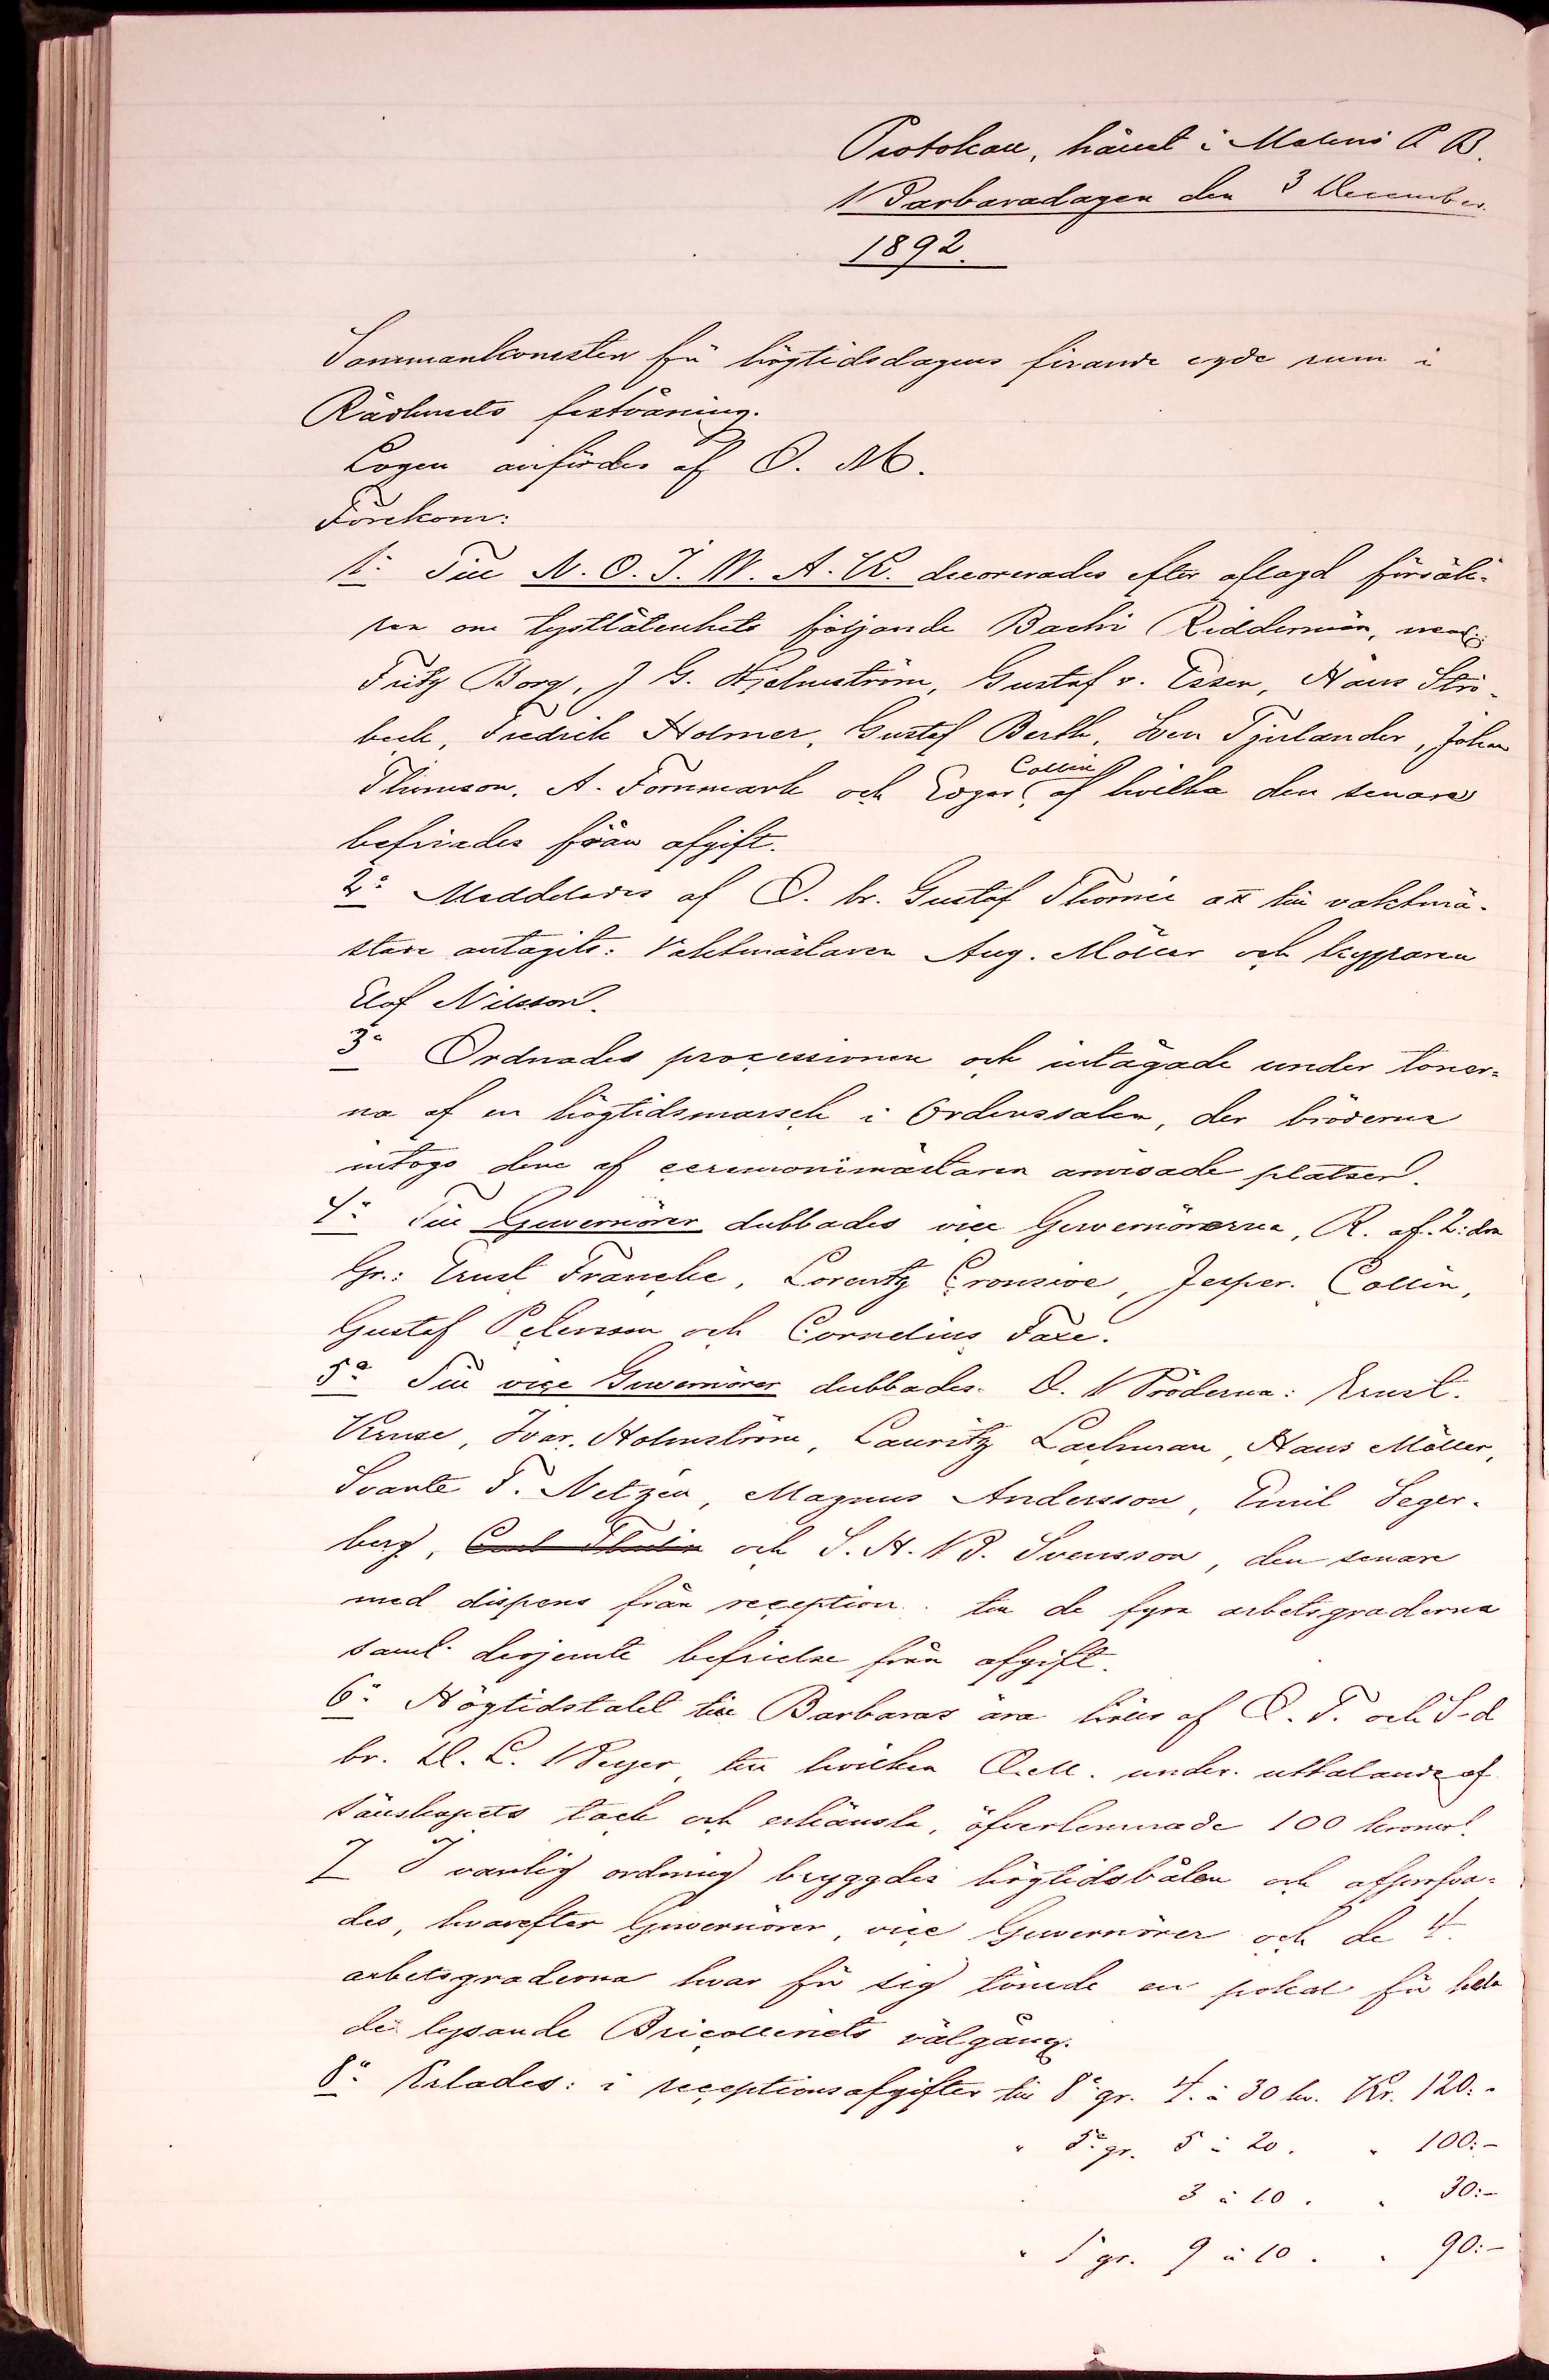 Protokoll, hållet i Malmö P B.
Barbaradagen den 3 December
1892.
Sammankomsten för högtidsdagens firande egde rum i
Rådhusets festvåning.
Logen anfördes af O. M.
Förekom:
1º Till N. O. J. W. A. K. decorerades efter aflagd försäk-
ran om tystlåtenhets följande Bachi Riddermän, neml:
Fritz Borg, J G. Hjelmström, Gustaf v. Essen, Håns Strö-
beck, Fredrik Holmer, Gustaf Berth, Sven Tjerlander, Johan
Thomson, A. Fornmark och Edgar Collin, af hvilka den senare
befriades från afgift.
2º Meddelades af O. br. Gustaf Thomée att till vaktmä-
stare antagits: Vaktmästaren Aug. Möller och kyparen
Elof Nilsson.
3º Ordnades processionen och intågade under toner-
na af en högtidsmarsch i Ordenssalen, der bröderna
intogo dene af ceremonimästaren anvisade platser.
4º Till Guvernörer dubbades vice Guvernörerna, R. af. 2:dra
Gr.: Ernst Francke, Lorentz Cronsioe, Jesper. Collin,
Gustaf Petersson och Cornelius Faxe.
5º Till vice Guvernörer dubbades. O. Bröderna: Ernst.
Kruse, Ivar. Holmström, Lauritz Lachman, Hans Möller,
Svante T. Netzén, Magnus Andersson, Emil Seger-
berg, Carl Thulin och S. H. B. Svensson, den senare
med dispens från reception. till de fyra arbetsgraderna
samt derjemte befrielse från afgift.
6º Högtidstalet till Barbaras ära hölls af O. T. och S-d
br. D. L. Beyer, till hvilken O. M. under. uttalande af
sällskapets tack och erkänsla, öfverlemnade 100 kronor.
7 I vanlig ordning bryggdes högtidsbålen och afprofva-
des, hvarefter Guvernörer, vice Guvernörer och de 4.
arbetsgraderna hvar för sig tömde en pokal för hela
det lysande Bricolleriets välgång.
8º Erlades: i receptionsafgifter till 8º gr. 4. à 30 kr. Kr. 120: -
" 5º gr. 5 à 20. " 100: -
3 à 10. " 30: -
" 1 gr. 9 à 10. " 90: -